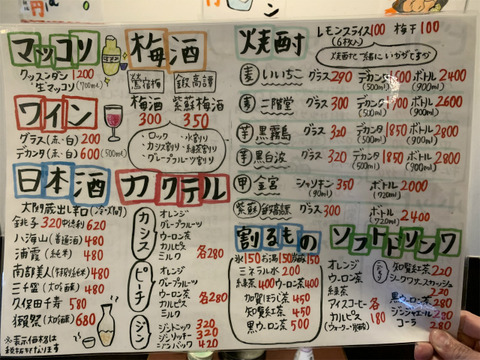 マッコリ
クッスンダン 1200
生マッコリ (700ml)
梅酒
鶯宿梅
梅酒
300
銀高譚
紫蘇梅酒
350
・ロック ・水割り
・グレープルーツ割り
ワイン
グラス(赤・白) 200
デカンタ(赤・白) 600 (500ml)
日本酒
銚子 320
八海山 480
浦霞 (純米) 480
南部美人 (特別純米) 480
480
久保田千寿 580
獺祭 680
※表示価格は
税抜きになります
カクテル
カシス
オレンジ
グレープフルーツ
ウーロン茶
カルピス
ミルク
各280
ピーチ
オレンジ
グレープフルーツ
ウーロン茶
カルピス
ミルク
各280
ジン
ジントニック 320
ジンリッキー 320
ジンバック 420
焼酎
レモンスライス 100
(6枚入)
梅干 100
焼酎にご一緒にいかがですか
麦 いいちこ グラス 290 デカンタ 1600 (500ml) ボトル 2400 (900ml)
麦 二階堂 グラス 300 デカンタ 1700 (500ml) ボトル 2600 (900ml)
芋 黒霧島 グラス 320 デカンタ 1850 (500ml) ボトル 2800 (900ml)
芋 黒白波 グラス 320 デカンタ 1850 (500ml) ボトル 2800 (900ml)
甲 金宮 シャリキン 350 (90ml) ボトル 2000 (720ml)
紫蘇 鍛高譚 グラス 300 ボトル 2400 (720ml)
割るもの
氷 150 お湯 150 炭酸 150
ミネラル水 200
緑茶 400 ウーロン茶 400
加賀ほうじ茶 450
知覧紅茶 450
黒ウーロン茶 500
ソフトドリンク
オレンジ
ウーロン茶
緑茶
アイスコーヒー
カルピス
(ウォーター・炭酸)
各180
知覧紅茶 220
シークヮーサースカッシュ
220
黒ウーロン茶 280
ジンジャエール 220
コーラ 280